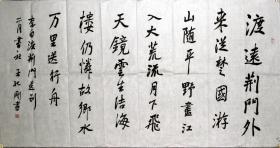 渡遠荆門外
来從楚國游
山随平野盡江
入大荒流月下飛
天鏡雲生结海
樓仍憐故鄉水
万里送行舟
李白渡荆門送别
二月書於